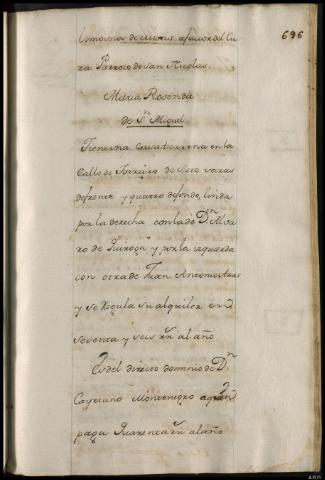 696
limosna de
ra Parroco de San Nicolas.
Maria Rosenda
de Sn. Miguel
Tiene una Casa terrena en la
Calle de Torreiro de siete varas
de frente y quatro de fondo, linda
por la derecha con la de Dn. Alva
ro de Quiroga y por la izquierda
con otra de Juan Antonio
y se regula su alquiler en
sesenta y seis rrn al año
Es del directo dominio de Dn.
Cayetano Montenegro a quien
paga Quarenta rrn al año